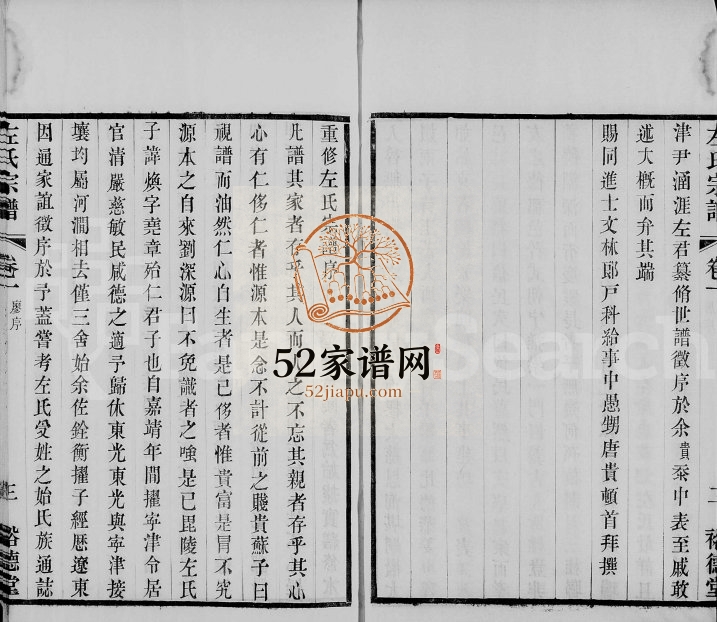 左氏宗譜
卷一
二
裕德堂
津尹涵涯左君纂脩世譜徵序於余貴忝中表至戚敢
述大槪而弁其端
賜同進士文林郎戶科給事中愚甥唐貴頓首拜撰
重修左氏宗譜序
凡譜其家者存乎其人而之不忘其親者存乎其心
心有仁侈仁者惟源本是念不計從前之賤貴蘇子曰
視譜而油然仁心自生者是已侈者惟貴富是冒不究
源本之自來劉深源曰不免識者之嗤是已毘陵左氏
子諱煥字堯章殆仁君子也自嘉靖年間擢寜津令居
官清嚴慈敏民咸德之適予歸休東光東光與寜津接
壤均屬河澗相去僅三舍始余佐銓衡擢子經歷遼東
因通家誼徵序於予蓋嘗考左氏受姓之始氏族通誌
左氏宗譜
卷一
廖序
三
裕德堂
52家谱网
52jiapu.com
Search